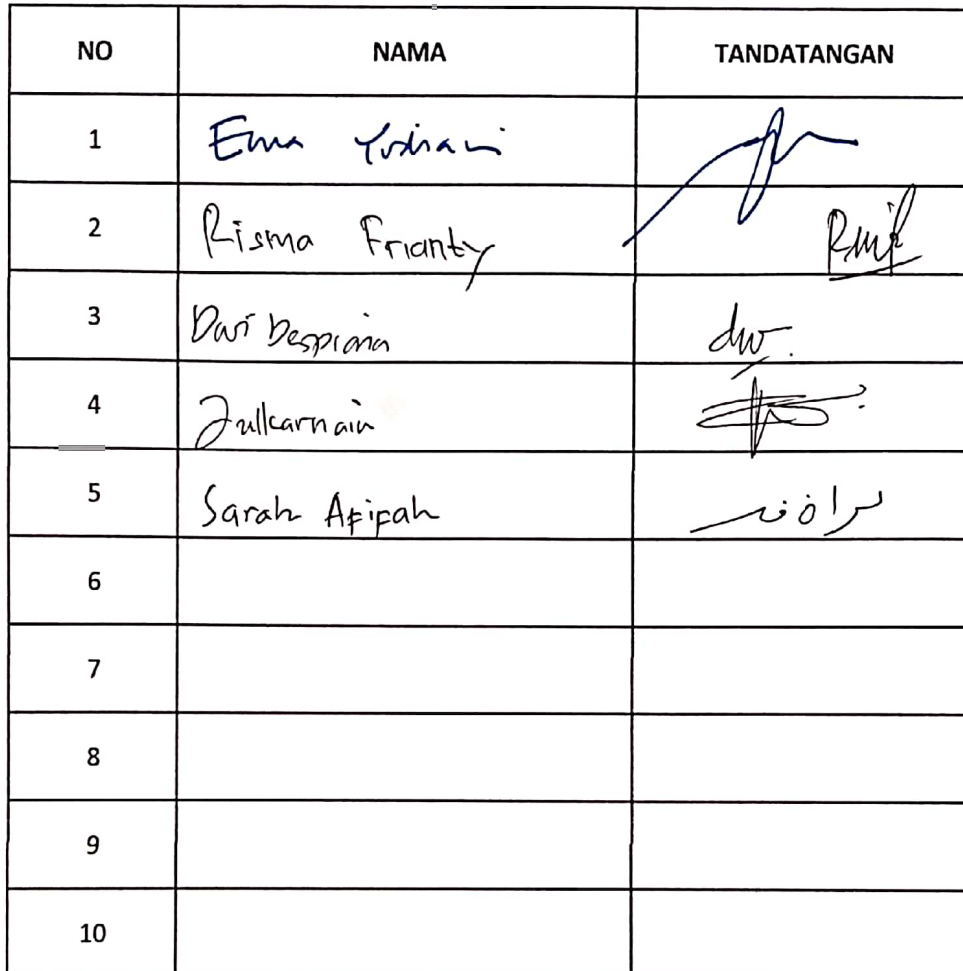 NO NAMA TANDATANGAN
1 Erna Yusriani
2 Risma Frianty Rmf
3 Dwi Despiana dw.
4 Zullkarnain
5 Sarah Afifah
6
7
8
9
10